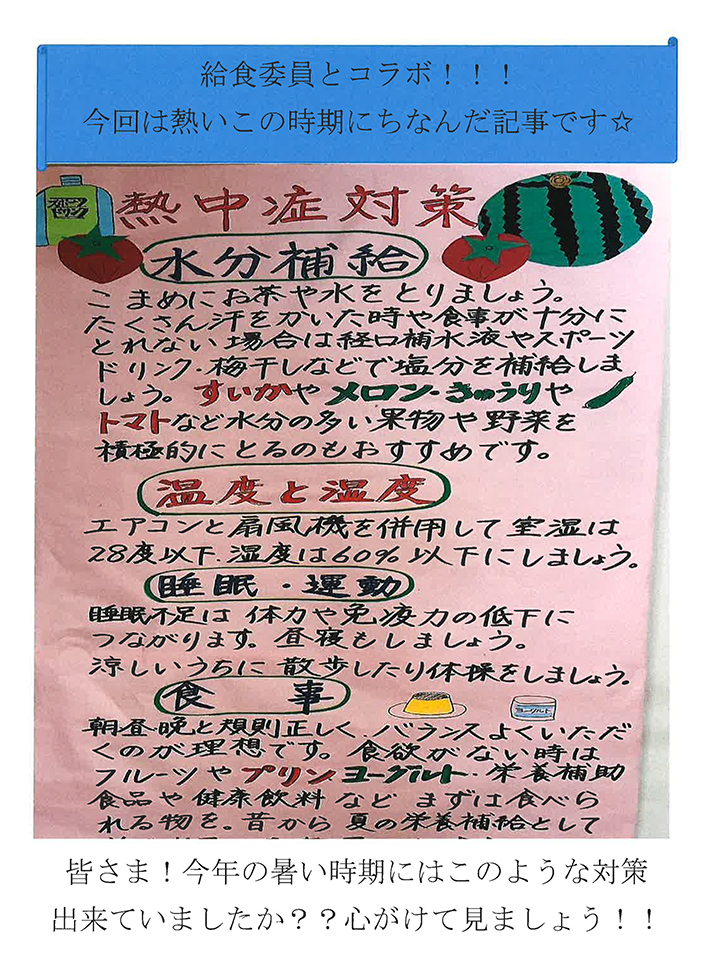 給食委員とコラボ！！！
今回は熱いこの時期にちなんだ記事です☆
スポーツ
ドリンク
熱中症対策
水分補給
こまめにお茶や水をとりましょう。
たくさん汗をかいた時や食事が十分に
とれない場合は経口補水液やスポーツ
ドリンク・梅干しなどで塩分を補給しま
しょう。すいかやメロン・きゅうりや
トマトなど水分の多い果物や野菜を
積極的にとるのもおすすめです。
温度と湿度
エアコンと扇風機を併用して室温は
28度以下、湿度は60%以下にしましょう。
睡眠・運動
睡眠不足は体力や免疫力の低下に
つながります。昼寝もしましょう。
涼しいうちに散歩したり体操をしましょう。
食事
ヨーグルト
朝・昼・晩と規則正しくバランスよくいただ
くのが理想です。食欲がない時は
フルーツやプリン、ヨーグルト・栄養補助
食品や健康飲料などまずは食べら
れる物を。昔から夏の栄養補給として
皆さま！今年の暑い時期にはこのような対策
出来ていましたか？？心がけて見ましょう！！